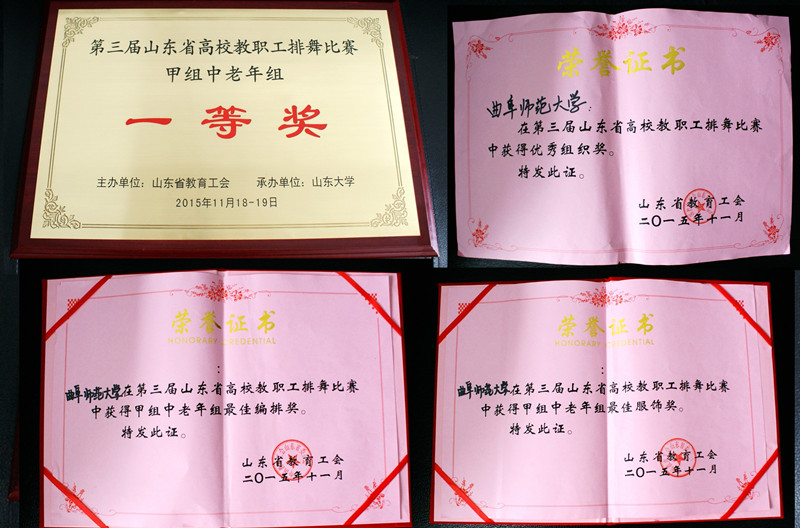 第三届山东省高校教职工排舞比赛
甲组中老年组
一等奖
主办单位：山东省教育工会 承办单位：山东大学
2015年11月18-19日
荣誉证书
曲阜师范大学：
在第三届山东省高校教职工排舞比赛
中获得优秀组织奖。
特发此证。
山东省教育工会
二〇一五年十一月
荣誉证书
HONORARY CREDENTIAL
：
曲阜师范大学在第三届山东省高校教职工排舞比赛
中获得甲组中老年组最佳编排奖。
特发此证。
山东省教育工会
二〇一五年十一月
荣誉证书
HONORARY CREDENTIAL
：
曲阜师范大学在第三届山东省高校教职工排舞比赛
中获得甲组中老年组最佳服饰奖。
特发此证。
山东省教育工会
二〇一五年十一月